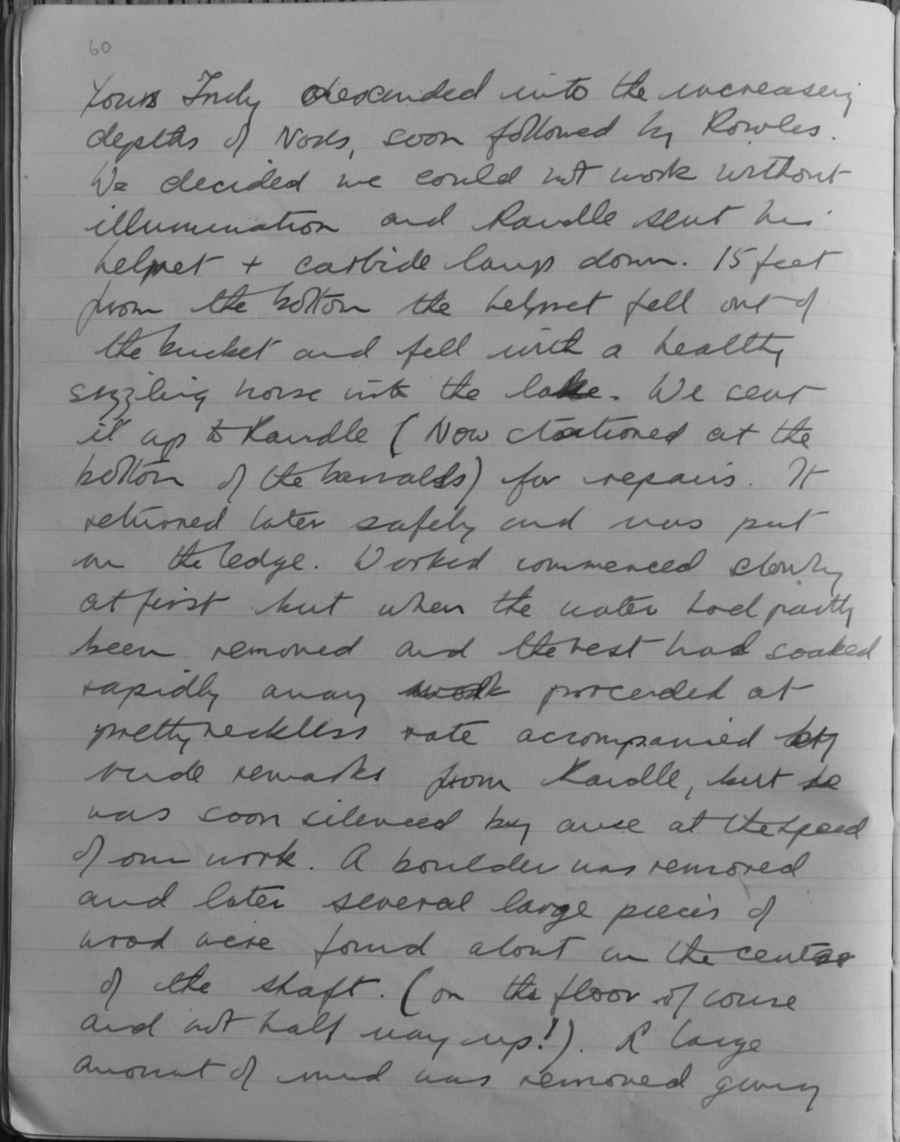 60
Yours Truly descended into the increasing
depths of Nods, soon followed by Rowles.
We decided we could not work without
illumination and Randle sent his
helmet + carbide lamp down. 15 feet
from the bottom the helmet fell out of
the bucket and fell with a healthy
sizzling noise into the lake. We sent
it up to Randle (Now stationed at the
bottom of the barrals) for repairs. It
returned later safely and was put
on the ledge. Worked commenced slowly
at first but when the water had partly
been removed and the rest had soaked
rapidly away work proceeded at
pretty reckless rate accompanied by
rude remarks from Randle, but he
was soon silenced by awe at the speed
of our work. A boulder was removed
and later several large pieces of
wood were found about in the centre
of the shaft. (on the floor of course
and not half way up!). A large
amount of mud was removed giving